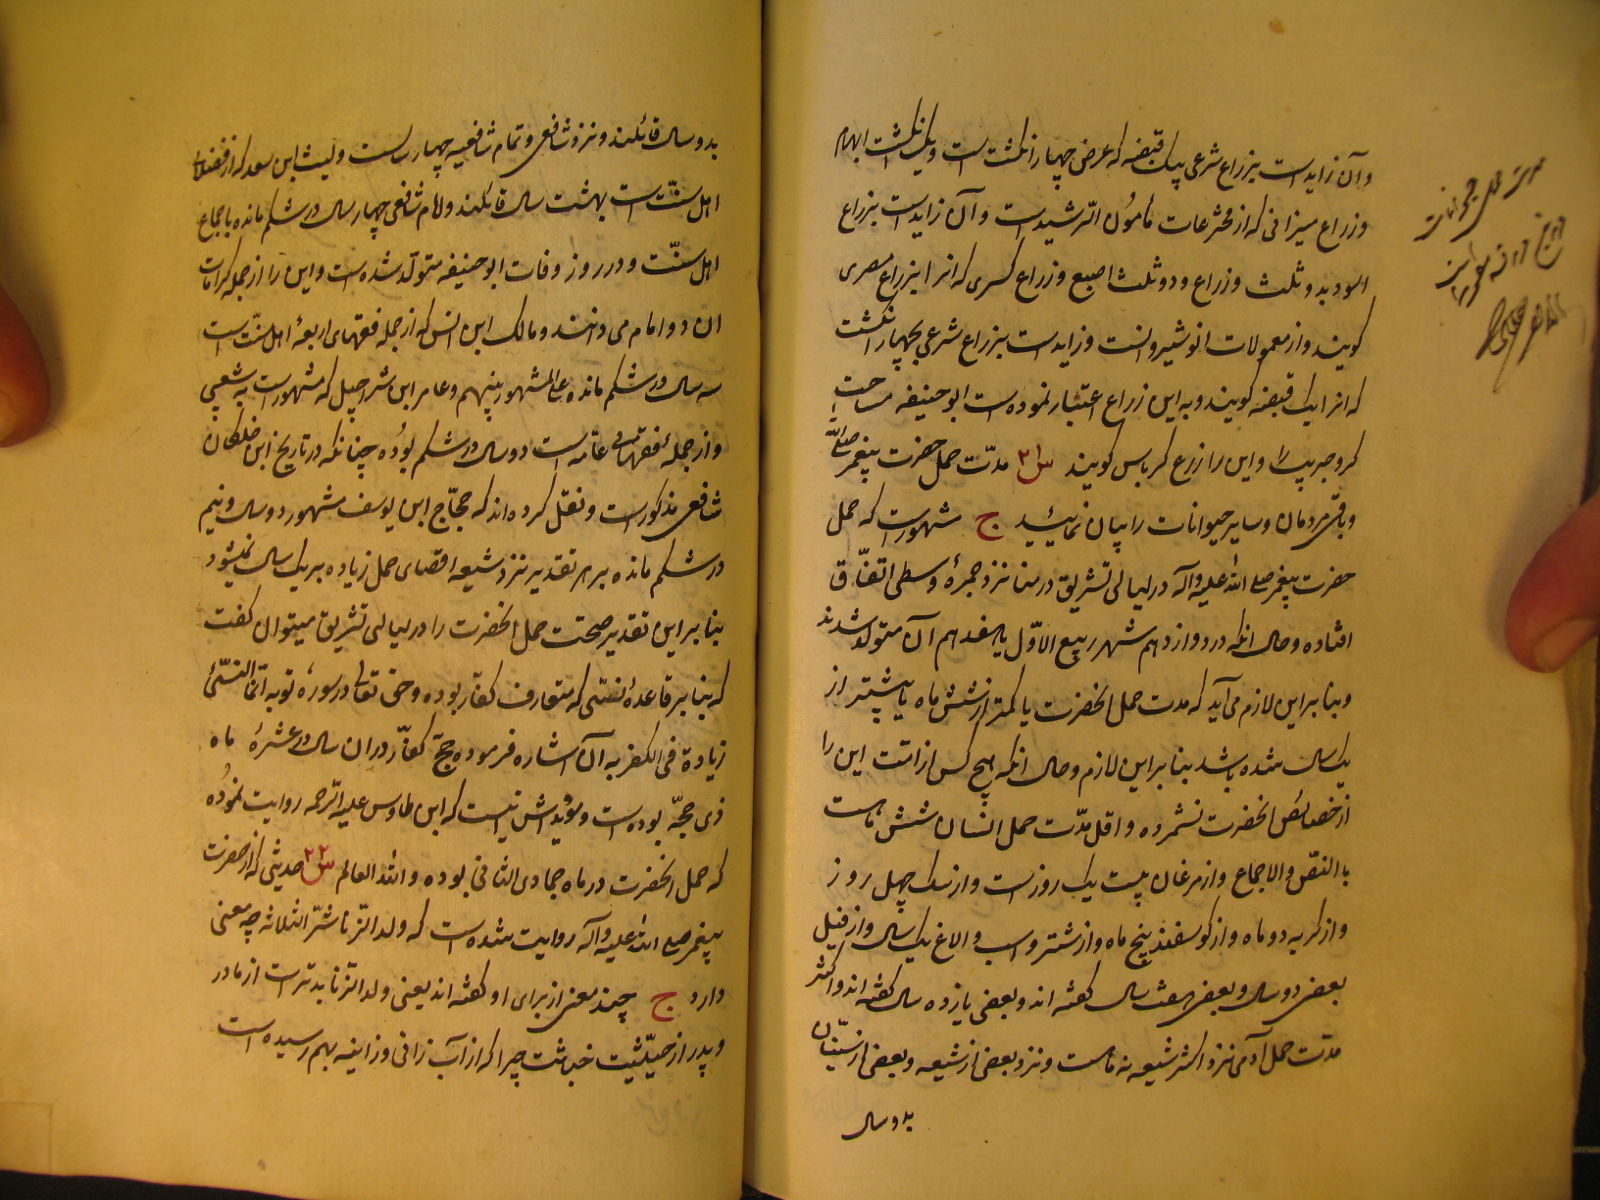 و آن زاید است بزراع شرعی بیک قبضه که عرض چهار انکشت است و بیک انکشت ابهام
و زراع میزانی که از مخترعات مامون الرشید است و آن زاید است بزراع
اسود بدو ثلث زراع و دو ثلث اصبع و زراع کسری که انرا بزراع مصری
کویند و از معمولات انوشیروانست و زاید است بزراع شرعی بچهار انکشت
که انرا یک قبضه کویند و به این زراع اعتبار نموده است ابو حنیفه مساحت
کر و جریب را و این را زرع کرباس کویند س۲۱ مدّت حمل حضرت پیغمبر صلّی اللّه
و باقی مردمان و سایر حیوانات را بیان نمائید ج مشهور است که حمل
حضرت پیغمبر صلی اللّه علیه و آله در لیالی تشریق در منا نزد جمرهٔ وسطی اتّفاق
افتاده و حال انکه در دوازدهم شهر ربیع الاوّل یا هفدهم آن متولد شدند
و بنا براین لازم می آید که مدت حمل انحضرت یا کمتر از شش ماه یا بیشتر از
یک سال شده باشد بنا براین لازم و حال انکه هیچ کس از امّت این را
از خصائص انحضرت نشمرده و اقل مدّت حمل انسان شش ماهست
با النّص والاجماع و از مرغان بیست یک روز است و از سک چهل روز
و از کربه دو ماه و از کوسفند پنج ماه و از شتر و اسب و الاغ یک سال و از فیل
بعضی دو سال و بعضی هفت سال کفته اند و بعضی یازده سال کفته اند و اکثر
مدّت حمل آدمی نزد اکثر شیعه نه ماهست و نزد بعضی از شیعه و بعضی از سنّیان
بدو سال
مدت حمل حیوانات
بدو سال قائلند و نزد شافعی و تمام شافعیه چهار سالست و لیث ابن سعد که از فضلای
اهل سنّت است بهشت سال قائلند و امام شافعی چهار سال در شکم مانده باجماع
اهل سنّت و در روز وفات ابو حنیفه متولّد شده است و این را از جمله کرامات
ان دو امام می دانند و مالک ابن انس که از جمله فقهای اربعهٔ اهل سنّت است
سه سال در شکم مانده علی المشهور بینهم و عامر ابن شراحیل که مشهور است به شعبی
و از جملهٔ فقهای عامّه است دو سال در شکم بوده چنانکه در تاریخ ابن خلکان
شافعی مذکور است و نقل کرده اند که حجّاج ابن یوسف مشهور دو سال و نیم
در شکم مانده بر هر تقدیر نزد شیعه اقصای حمل زیاده بر یک سال نمیشود
بنا براین تقدیر صحّت حمل انحضرت را در لیالی تشریق میتوان کفت
که بنا بر قاعدهٔ نسئی که متعارف کفّار بوده و حق تعالی در سورهٔ توبه انّما النّسئ
زیادة فی الکفر به آن اشاره فرموده حجّ کفّار دران سال در عشرهٔ ماه
ذی حجّه بوده است و مؤیّدش انیست که ابن طاوس علیه الرّحمه روایت نموده
که حمل انحضرت در ماه جمادی الثانی بوده و اللّه العالم س۲۲ حدیثی که از حضرت
پیغمبر صلی اللّه علیه و آله روایت شده است که ولد الزّنا شرّ الثلاثه چه معنی
دارد ج چند معنی از برای او کفته اند یعنی ولد الزّنا بدتر است از مادر
و پدر از حیثیّت خباثت چرا که از آب زانی و زانیه بهم رسیده است